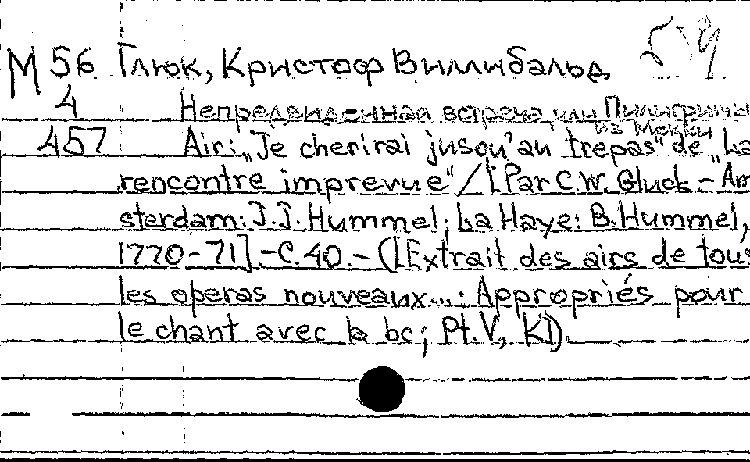 М 56 Глюк, Кристоф Виллибальд.
4 Непредвиденная встреча или Пилигримы
из Мекки
457 Air: „Je cherirai jusqu'au trepas" de „La
rencontre imprevue" / [Par C.W. Gluck – Am
sterdam: J.J. Hummel; La Haye: B. Hummel,
1770-71]. – C. 40. – ([Extrait des airs de tous
les operas nouveaux...: Appropriés pour
le chant avec la bc; Pt. V,